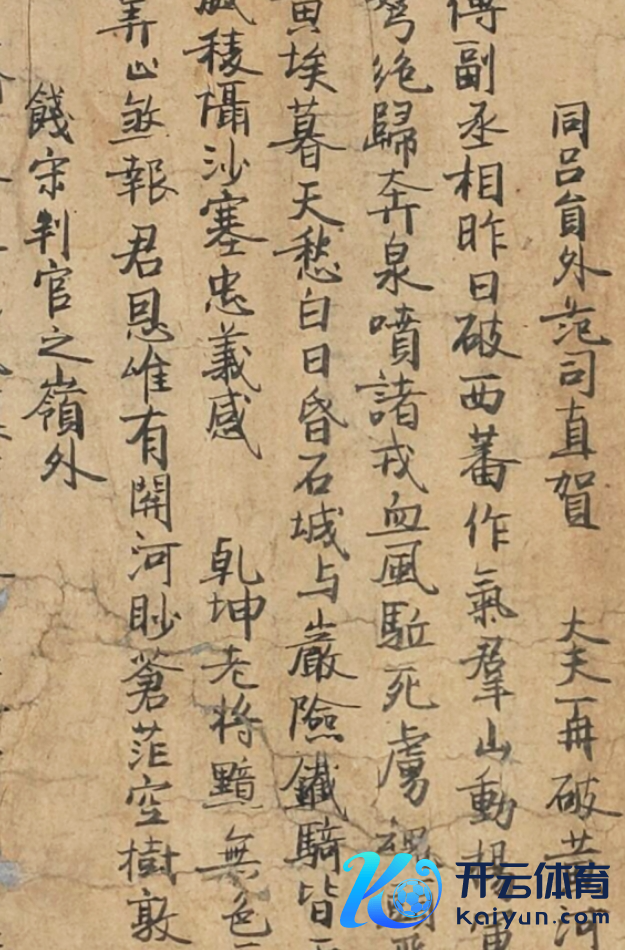 同呂員外范司直賀 大夫再破黃河
傳副丞相昨日破西蕃作氣羣山動揚軍
弩絶歸奔泉噴諸戎血風駈死虜魂
黃埃暮天愁白日昏石城与巖險鐵騎皆
威稜懾沙塞忠義感 乾坤老將黯無色
止煞報君恩唯有開河眇蒼茫空樹敦
餞宋判官之嶺外
开云体育
kaiyun.com